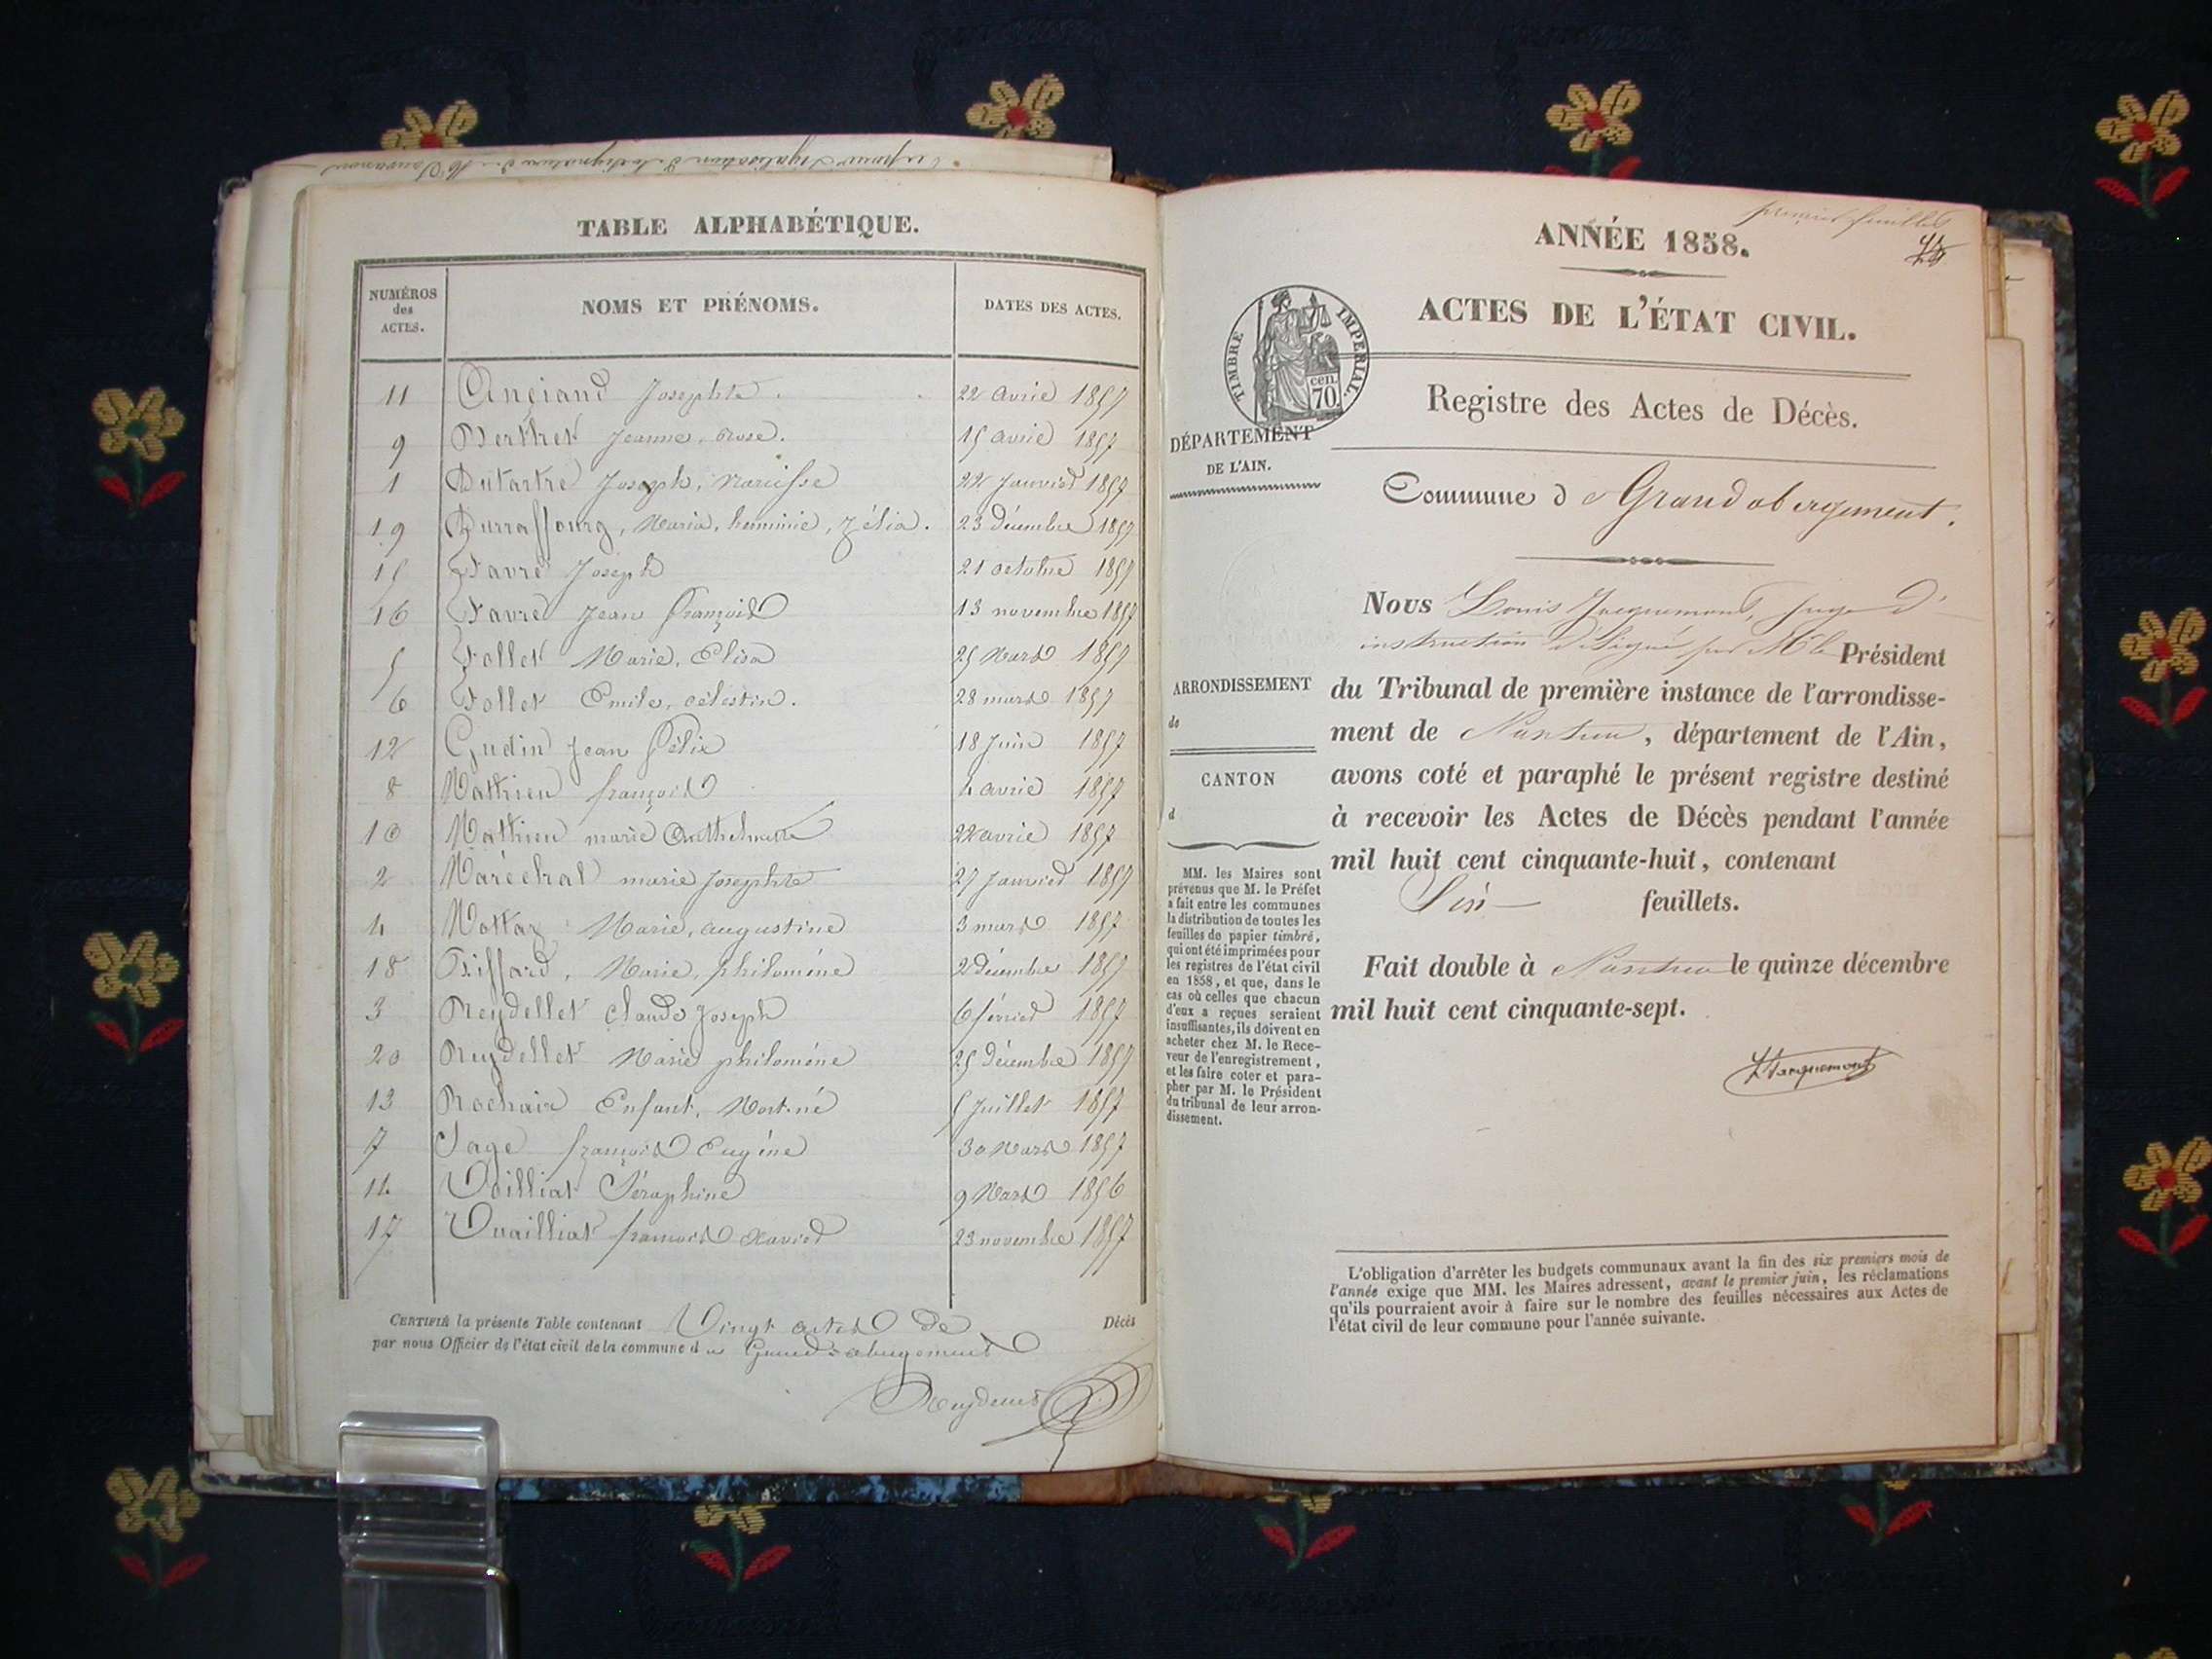 TABLE ALPHABÉTIQUE.
NUMÉROS des ACTES. NOMS ET PRÉNOMS. DATES DES ACTES.
11 Josephte. 22 avril 1857
9 Berthet Jeanne, Rose. 15 avril 1857
1 Dutartre Joseph, Narcisse 22 Janvier 1857
19 Durraffourg, Maria, herminie, Zélia. 23 décembre 1857
15 Favre Joseph 21 octobre 1857
16 Favre Jean François 13 novembre 1857
5 Follet Marie, Elisa 25 Mars 1857
6 Follet Emile, célestin. 28 mars 1857
12 Gudin Jean Félix 18 Juin 1857
8 Mathieu françois 4 avril 1857
10 Mathieu marie Anthelmette 22 avril 1857
2 Maréchal marie Josephte 27 Janvier 1857
4 Mottaz Marie, augustine 3 mars 1857
18 Piffard, Marie, philomène 2 décembre 1857
3 Reydellet claude Joseph 6 février 1857
20 Reydellet Marie philomène 25 décembre 1857
13 Rochaix Enfant, Mort-né 5 Juillet 1857
7 Sage françois Eugène 30 Mars 1857
14 Séraphine 9 Mars 1856
17 Vuailliat françois xavier 23 novembre 1857
CERTIFIÉ la présente Table contenant Vingt actes de Décès
par nous Officier de l'état civil de la commune d u Grand-abergement
premier feuillet
ANNÉE 1858.
ACTES DE L'ÉTAT CIVIL.
TIMBRE IMPERIAL.
cen.
70.
Registre des Actes de Décès.
DÉPARTEMENT
DE L'AIN.
Commune d e Grand abergement.
Nous Louis Jacquemont, Juge d'
instruction délégué par Mr le Président
du Tribunal de première instance de l'arrondisse-
ment de Nantua, département de l'Ain,
avons coté et paraphé le présent registre destiné
à recevoir les Actes de Décès pendant l'année
mil huit cent cinquante-huit, contenant
feuillets.
Fait double à Nantua le quinze décembre
mil huit cent cinquante-sept.
Jacquemont
ARRONDISSEMENT
de
CANTON
d
MM. les Maires sont
prévenus que M. le Préfet
a fait entre les communes
la distribution de toutes les
feuilles de papier timbré,
qui ont été imprimées pour
les registres de l'état civil
en 1858, et que, dans le
cas où celles que chacun
d'eux a reçues seraient
insuffisantes, ils doivent en
acheter chez M. le Rece-
veur de l'enregistrement,
et les faire coter et para-
pher par M. le Président
du tribunal de leur arron-
dissement.
L'obligation d'arrêter les budgets communaux avant la fin des six premiers mois de
l'année exige que MM. les Maires adressent, avant le premier juin, les réclamations
qu'ils pourraient avoir à faire sur le nombre des feuilles nécessaires aux Actes de
l'état civil de leur commune pour l'année suivante.